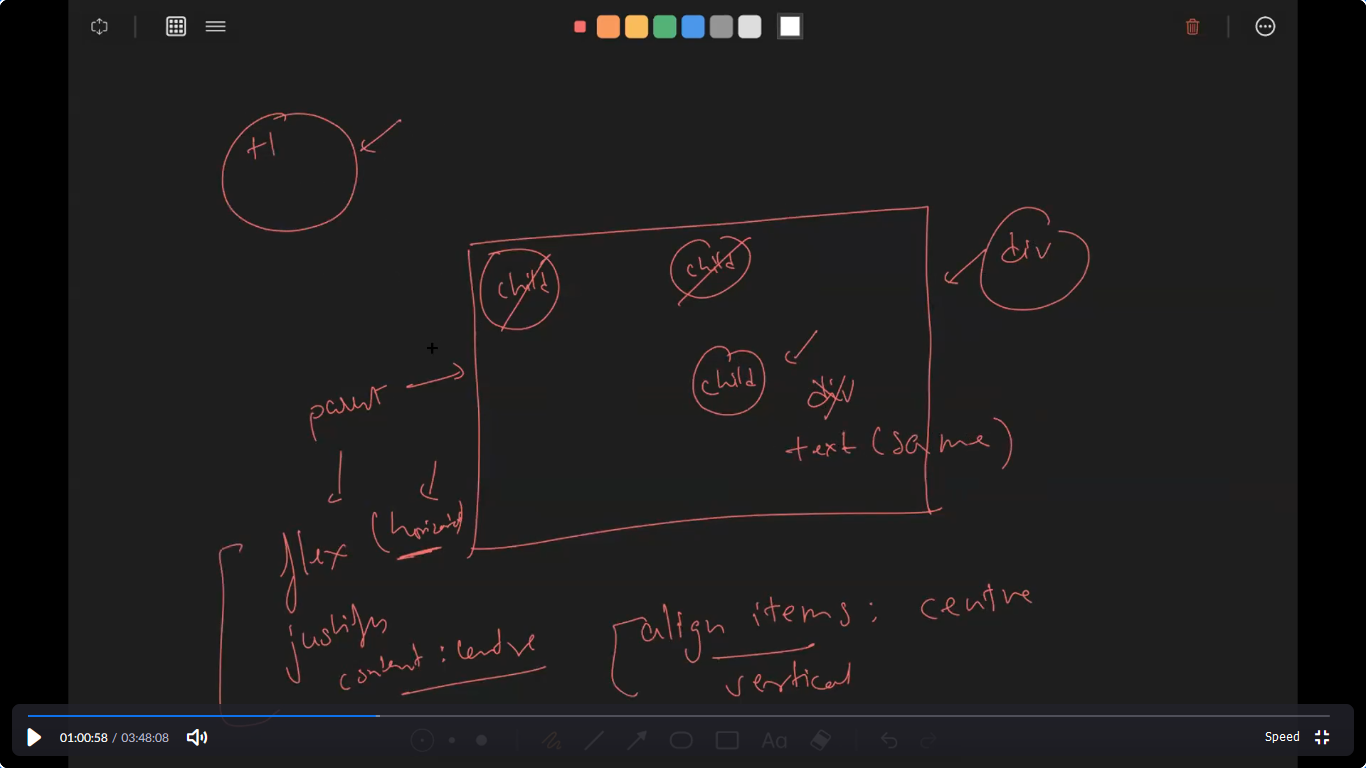 +1
div
child
child
child
div
text (same)
parent
flex (horizontal)
justify
content : centre
align items : centre
vertical
Aa
01:00:58 / 03:48:08
Speed